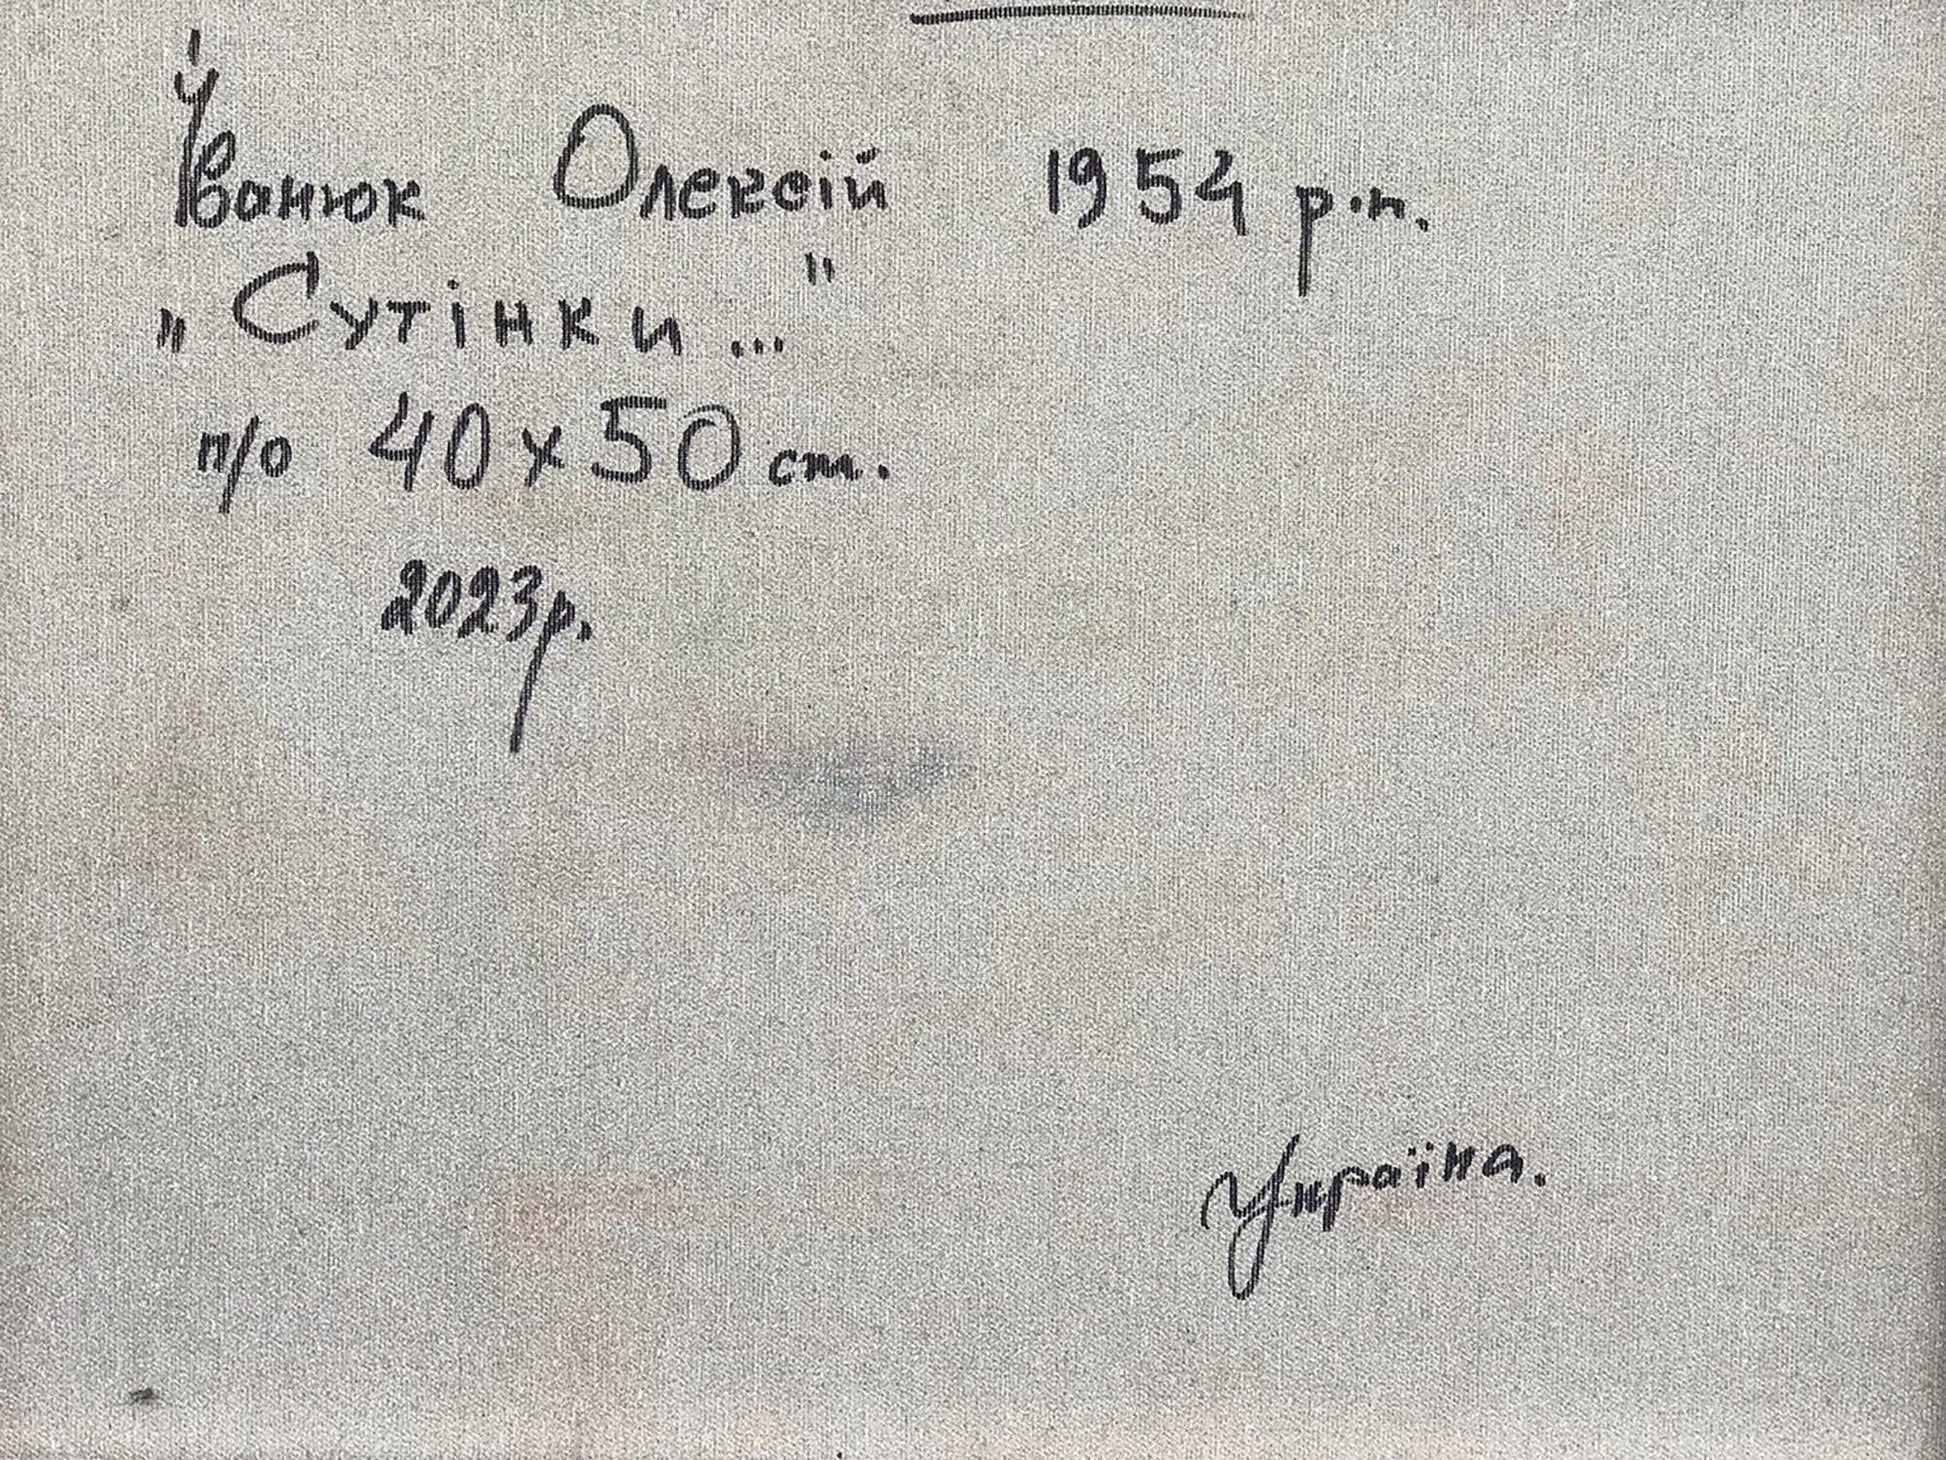 Іванюк Олексій 1954 р.н.
„Сутінки..."
п/о 40х50 cm.
2023р.
Україна.